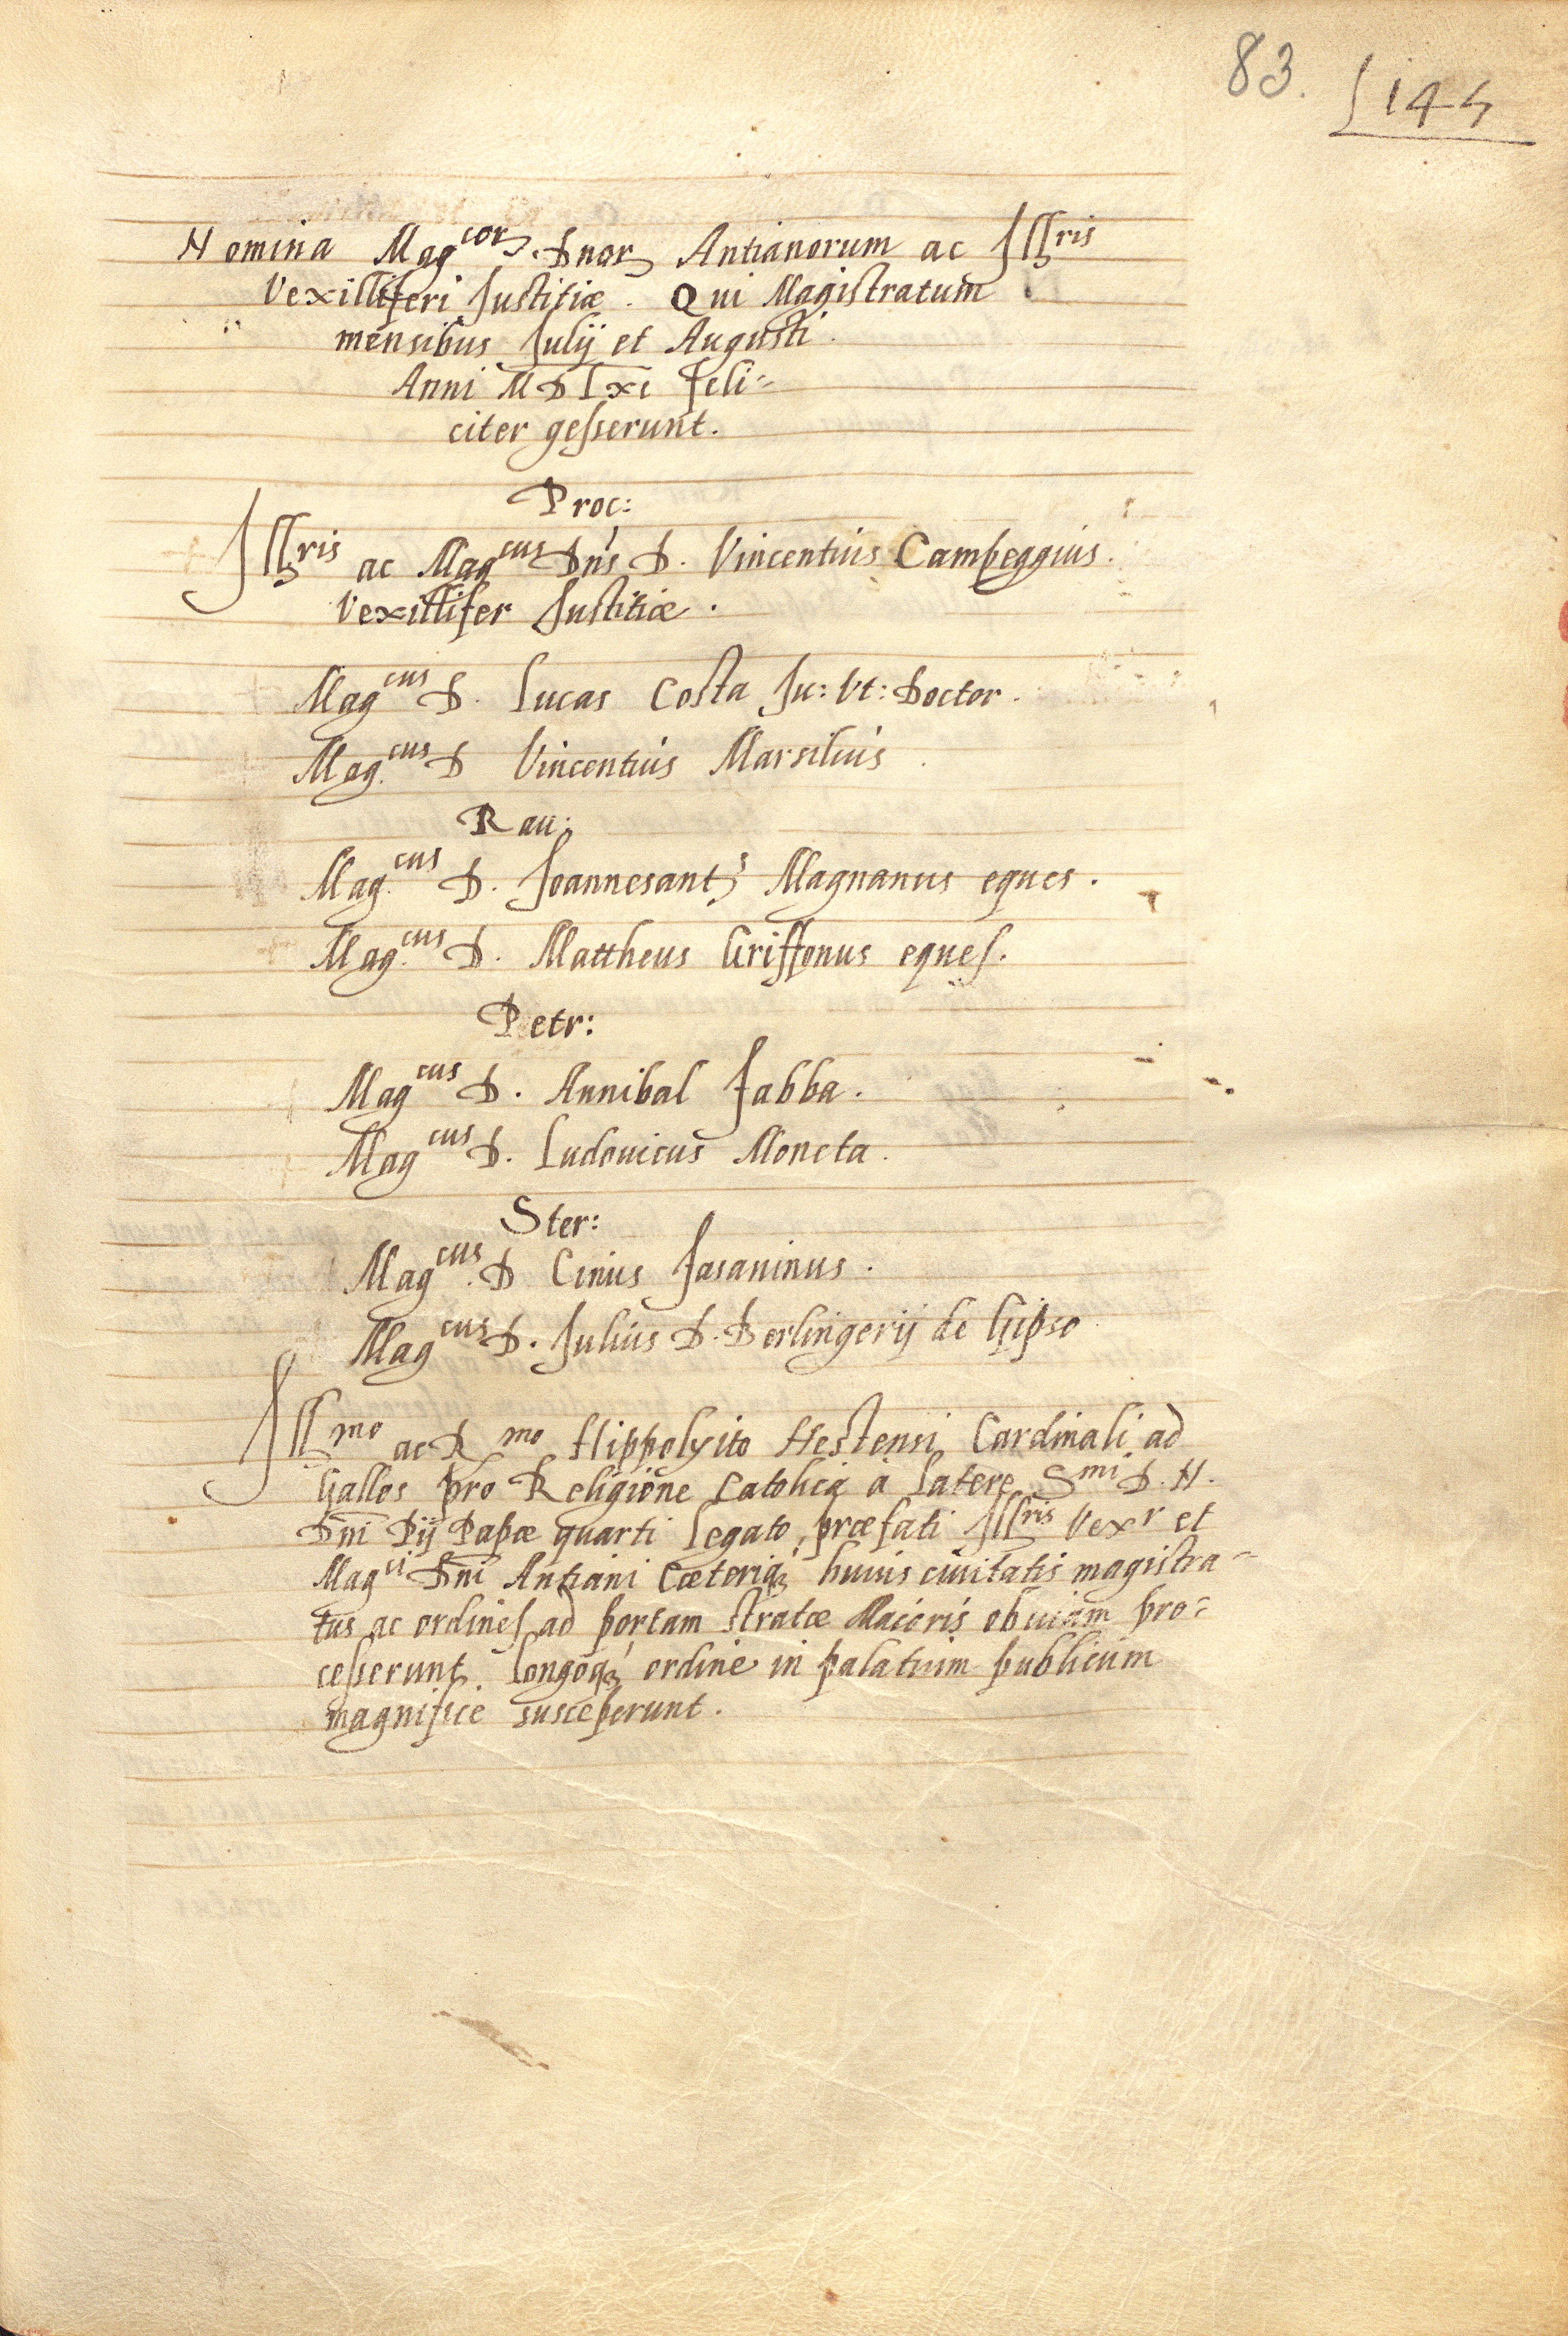 83. 145
Nomina Mag^cor. Dnor. Antianorum ac Ill^ris
Vexilliferi Justitiæ. Qui Magistratum
mensibus Julij et Augusti.
Anni MDLxi feli=
citer gesserunt.
Proc:
Ill^ris ac Mag^cus Dn's D. Vincentius Campeggius.
Vexillifer Justitiæ.
Mag^cus D. Lucas Costa Ju: Vt: Doctor.
Mag.^cus D Vincentius Marsilius.
Rau:
Mag.^cus D. Joannesant^s Magnanus eques.
Mag.^cus D. Mattheus Griffonus eques.
Petr:
Mag^cus D. Annibal Fabba.
Mag^cus D. Ludouicus Moneta.
Ster:
Mag^cus. D Cinus Fasaninus.
Mag^cus D. Julius D. Berlingerij de Gipso
Ill^mo ac R^mo Hippolyito Hestensi Cardinali ad
Gallos pro Religione Catolica à latere S^mi D. N.
Dni Pij Papæ quarti Legato, præfati Ill^ris Vex^r et
Mag^ci Dni Antiani Cæteriq; huius ciuitatis magistra=
tus ac ordines ad portam stratæ Maioris obuiam pro=
cesserunt. Longoq; ordine in palatium publicum
magnifice susceperunt.